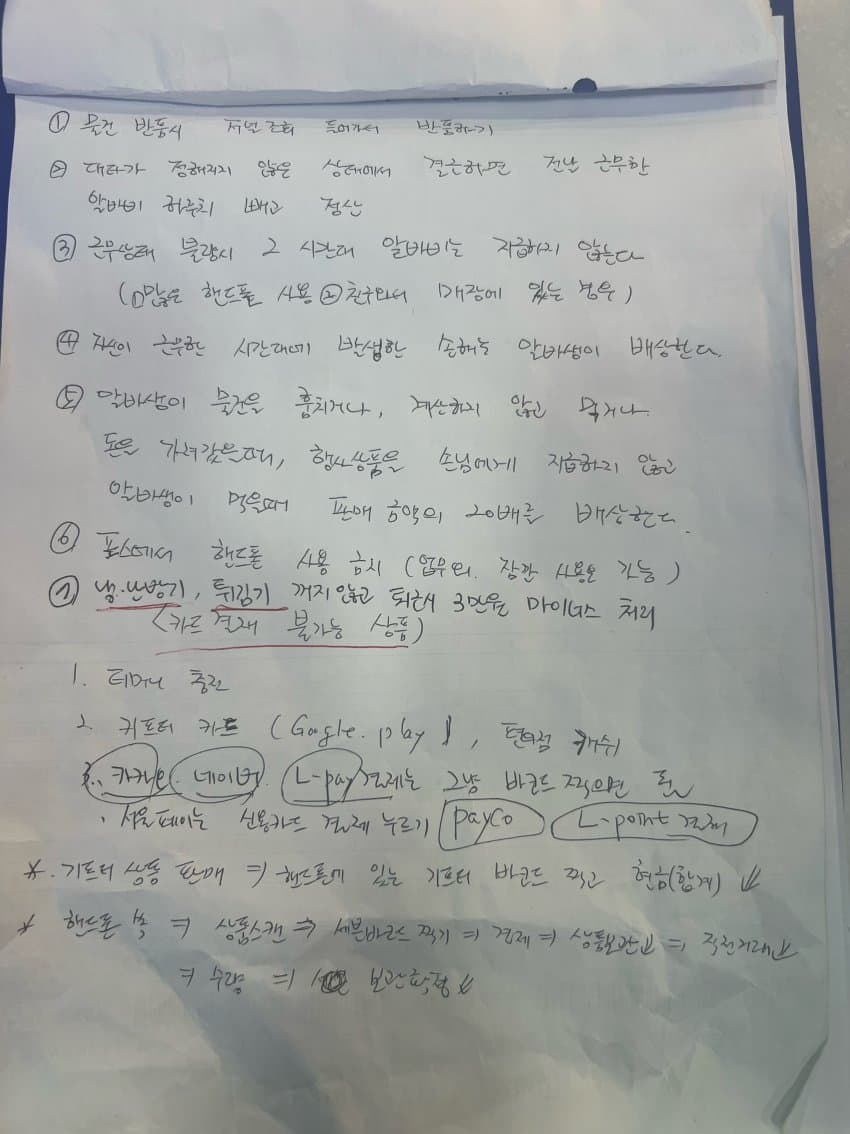 ① 물건 반품시 저널조회 들어가서 반품하기
② 대타가 정해지지 않은 상태에서 결근하면 전날 근무한
알바비 하루치 빼고 정산
③ 근무상태 불량시 그 시간대 알바비는 지급하지 않는다
(①많은 핸드폰 사용 ②친구와서 매장에 있는 경우)
④ 자신이 근무한 시간대에 발생한 손해는 알바생이 배상한다.
⑤ 알바생이 물건을 훔치거나, 계산하지 않고 먹거나
돈을 가져갔을때, 행사상품을 손님에게 지급하지 않고
알바생이 먹을때 판매 금액의 20배를 배상한다.
⑥ 포스에서 핸드폰 사용 금지 (업무외. 잠깐 사용은 가능)
⑦ 냉.난방기, 튀김기 끄지않고 퇴근시 3만원 마이너스 처리
<카드 결재 불가능 상품)
1. 티머니 충전
2. 기프티 카드 (Google. play), 편의점 캐쉬
3. 카카오. 네이버. L-pay 결제는 그냥 바코드 찍으면 됨
. 서울페이는 신용카드 결제 누르기 payco L-point 결재
*. 기프티 상품 판매 ⇒ 핸드폰에 있는 기프티 바코드 찍고 현금(합계) ↓
* 핸드폰 ⇒ 상품스캔 ⇒ 세븐바코드 찍기 ⇒ 결제 ⇒ 상품보관↓ ⇒ 직전거래↓
⇒ 수량 ⇒ 보관확정↓